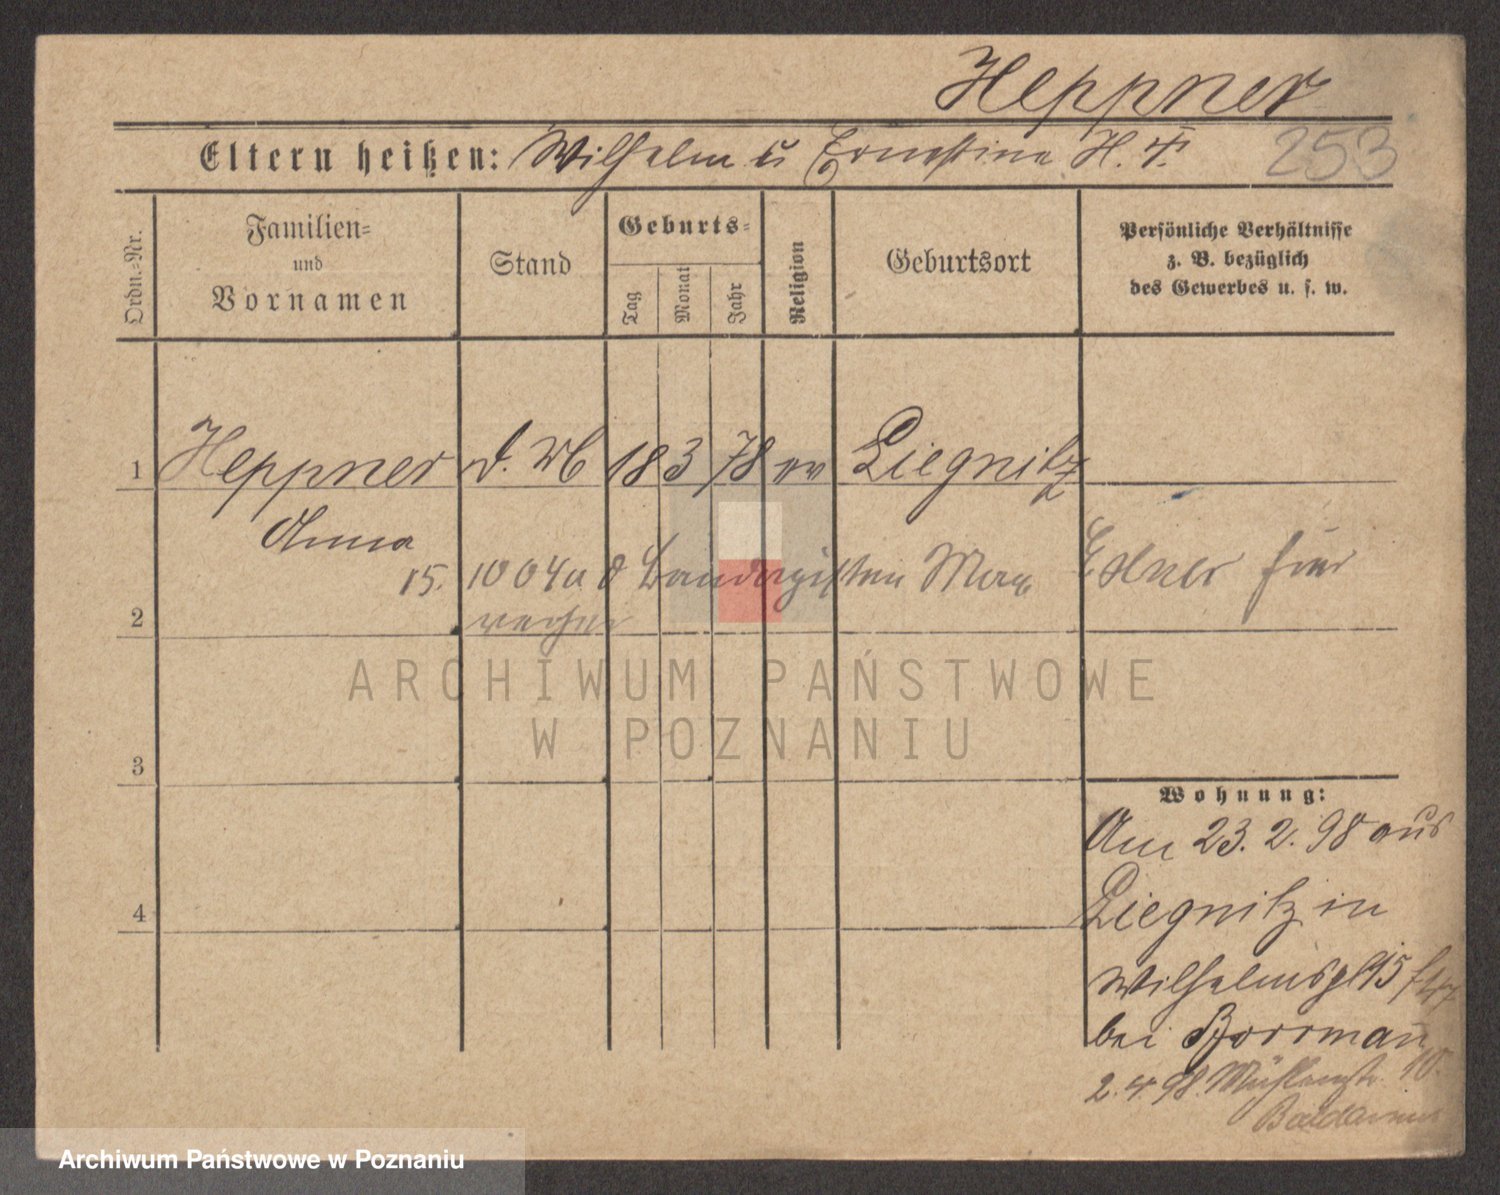 Heppner
Eltern heißen: Wilhelm u Ernestine H. T.
253
Ordn.=Nr.
Familien=
und
Vornamen
Stand
Geburts=
Tag
Monat
Jahr
Religion
Geburtsort
Persönliche Verhältnisse
z. B. bezüglich
des Gewerbes u. s. w.
1 Heppner d. 18 3 78 ev Liegnitz
Anna
15. 10 04 Bandagisten Max hier
2
3
ARCHIWUM PAŃSTWOWE
W POZNANIU
Wohnung:
Am 23. 2. 98 aus
4
Liegnitz in
Wilhelmspl 15
bei Borrmann
2. 4. 98. Mühlenstr. 10
Archiwum Państwowe w Poznaniu